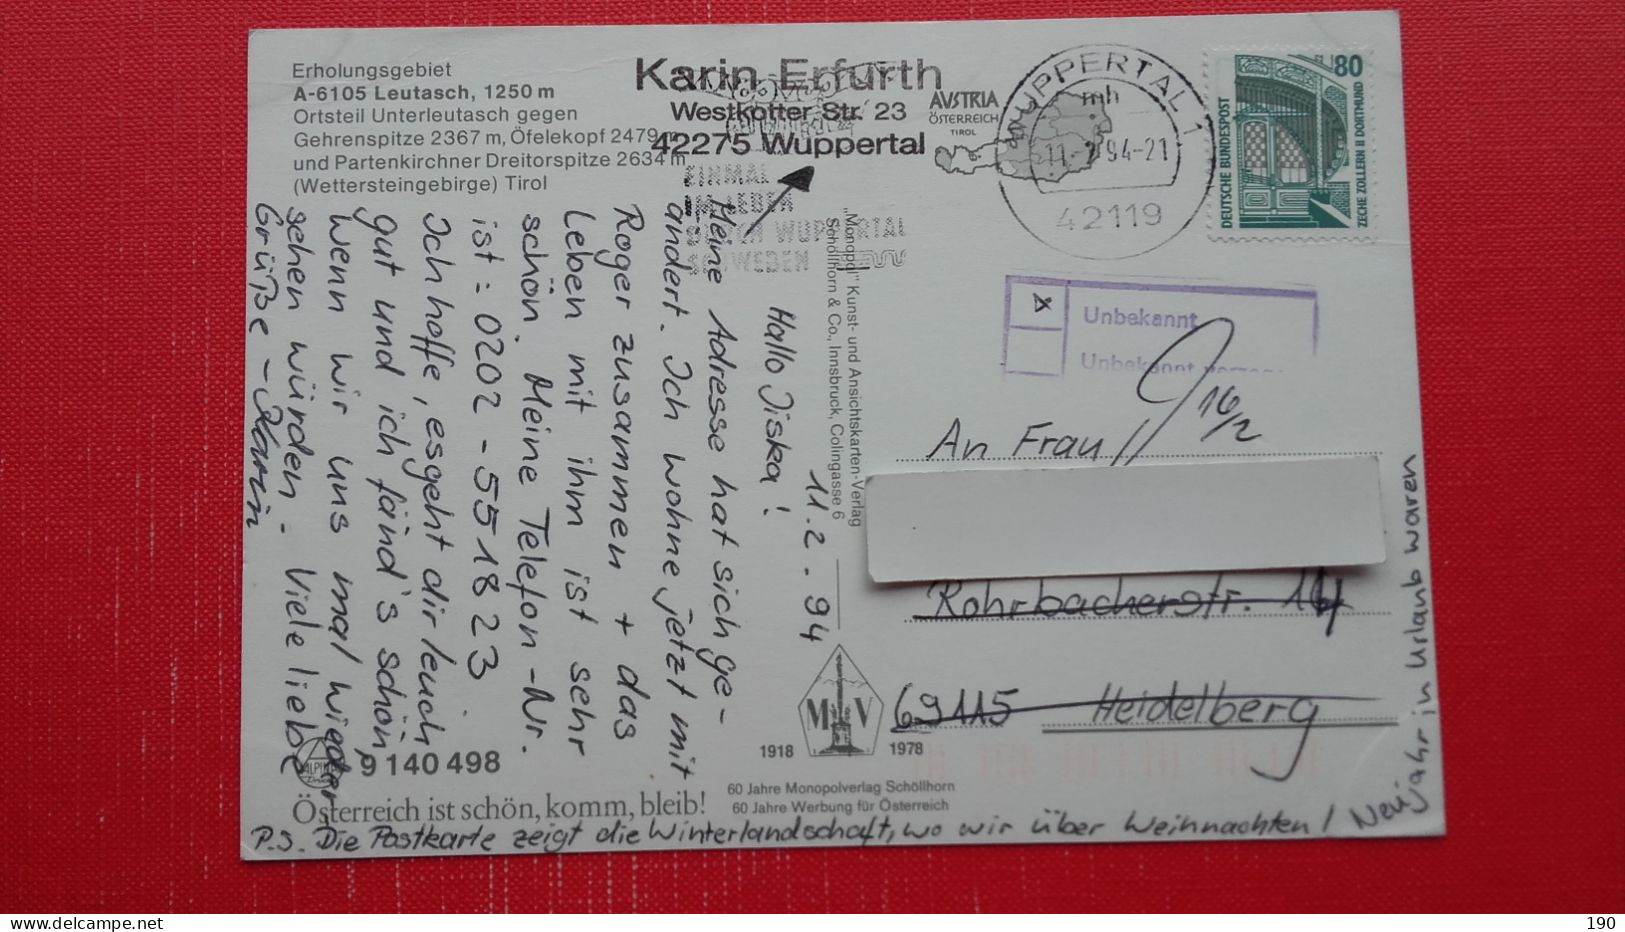 Erholungsgebiet
A-6105 Leutasch, 1250 m
Ortsteil Unterleutasch gegen
Gehrenspitze 2367 m, Öfelekopf 2479 m
und Partenkirchner Dreitorspitze 2634 m
(Wettersteingebirge) Tirol
Karin Erfurth
Westkotter Str. 23
42275 Wuppertal
EINMAL
IM LEBEN
DURCH WUPPERTAL
SCHWEBEN
AVSTRIA
ÖSTERREICH
TIROL
WUPPERTAL 1
mh
11.-2.94-21
42119
80
DEUTSCHE BUNDESPOST
ZECHE ZOLLERN II DORTMUND
x
Unbekannt
Unbekannt
16/2
11.2.94
Hallo Jiska!
Meine Adresse hat sich ge-
ändert. Ich wohne jetzt mit
Roger zusammen + das
Leben mit ihm ist sehr
schön. Meine Telefon-Nr.
ist: 0202 - 551823
Ich hoffe, es geht dir/euch
gut und ich fänd's schön
wenn wir uns mal wieder
sehen würden. Viele liebe
Grüße - Karin
"Monopol" Kunst- und Ansichtskarten-Verlag
Schöllhorn & Co., Innsbruck, Colingasse 6
An Frau
Rohrbacherstr.
69115 Heidelberg
M V
1918 1978
ALPINE
9 140 498
60 Jahre Monopolverlag Schöllhorn
60 Jahre Werbung für Österreich
Österreich ist schön, komm, bleib!
P.S. Die Postkarte zeigt die Winterlandschaft, wo wir über Weihnachten / Neujahr in Urlaub waren
190